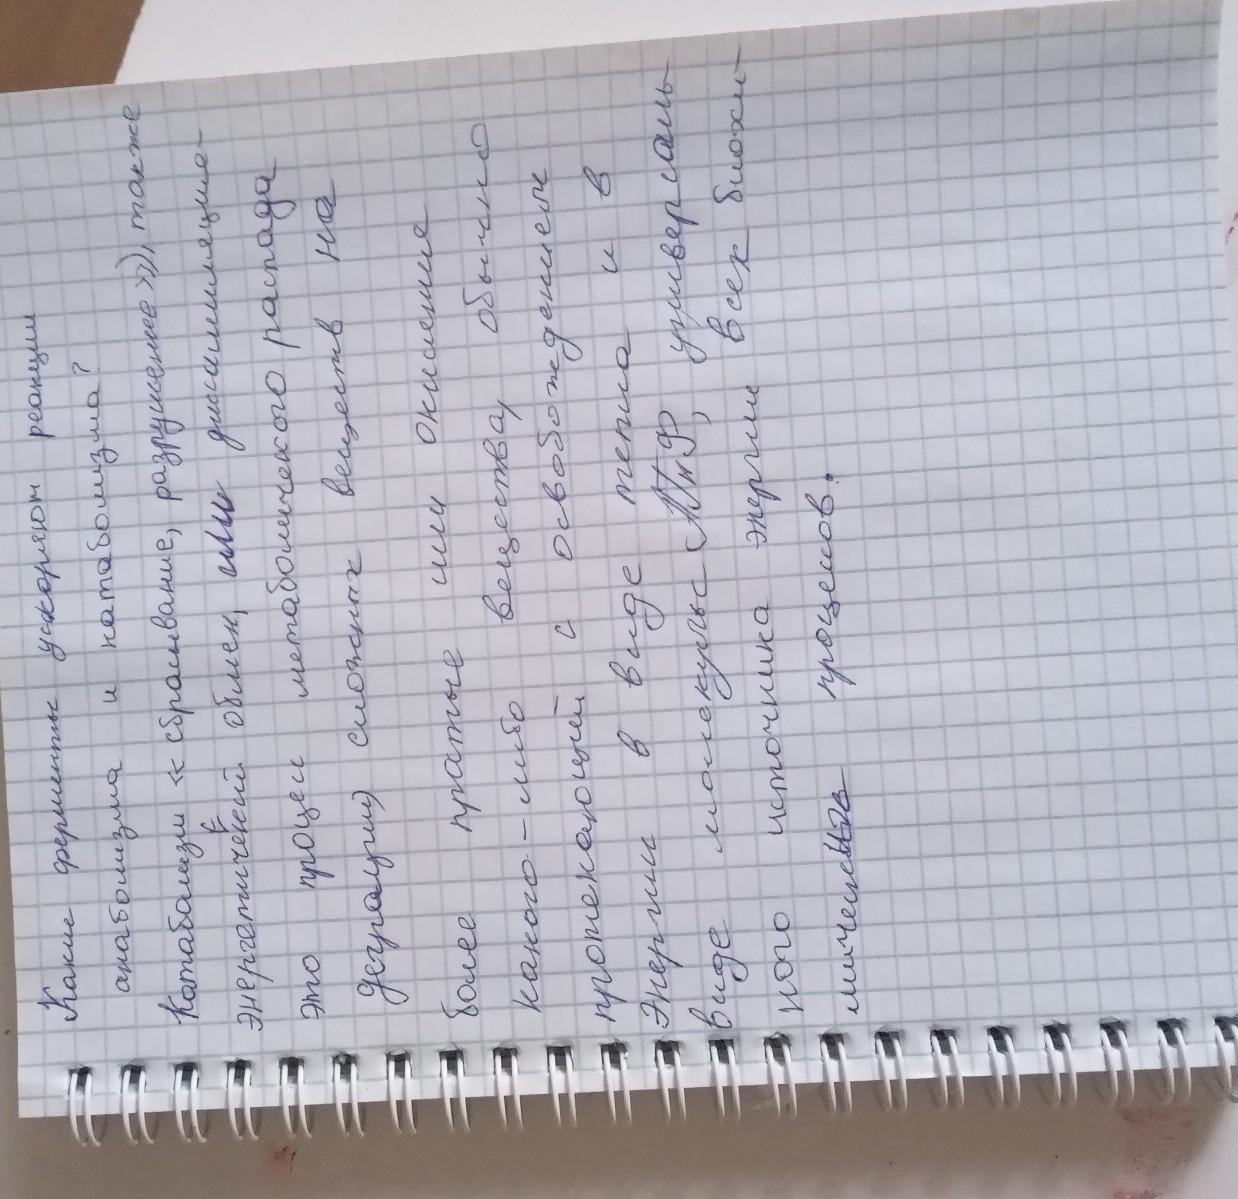 Какие ферменты ускоряют реакции
анаболизма и катаболизма?
Катаболизм «сбрасывание, разрушение»), также
энергетический обмен, или диссимиляция-
это процесс метаболического распада
деградации) сложных веществ на
более простые или окисление
какого-либо вещества, обычно
протекающий с освобождением
энергии в виде тепла и в
виде молекулы АТФ, универсаль-
ного источника энергии всех биохи-
мических процессов.